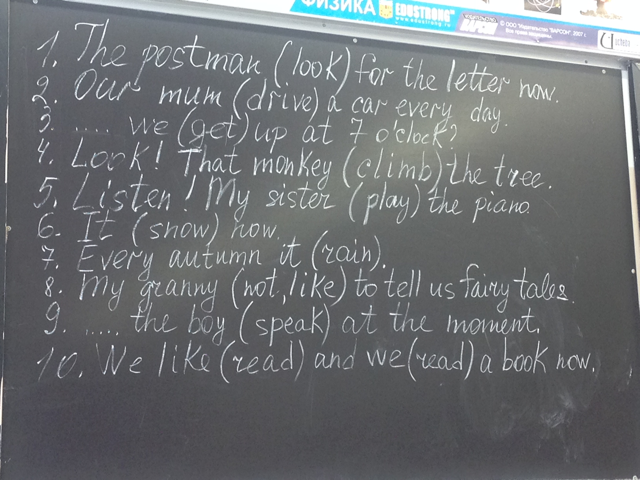 ФИЗИКА EDUSTRONG
www.edustrong.ru
ВАРСОН
© ООО "Издательство "ВАРСОН", 2007 г.
Все права защищены.
1. The postman (look) for the letter now.
2. Our mum (drive) a car every day.
3. .... we (get) up at 7 o'clock?
4. Look! That monkey (climb) the tree.
5. Listen! My sister (play) the piano.
6. It (snow) now.
7. Every autumn it (rain).
8. My granny (not, like) to tell us fairy tales.
9. ..... the boy (speak) at the moment.
10. We like (read) and we (read) a book now.